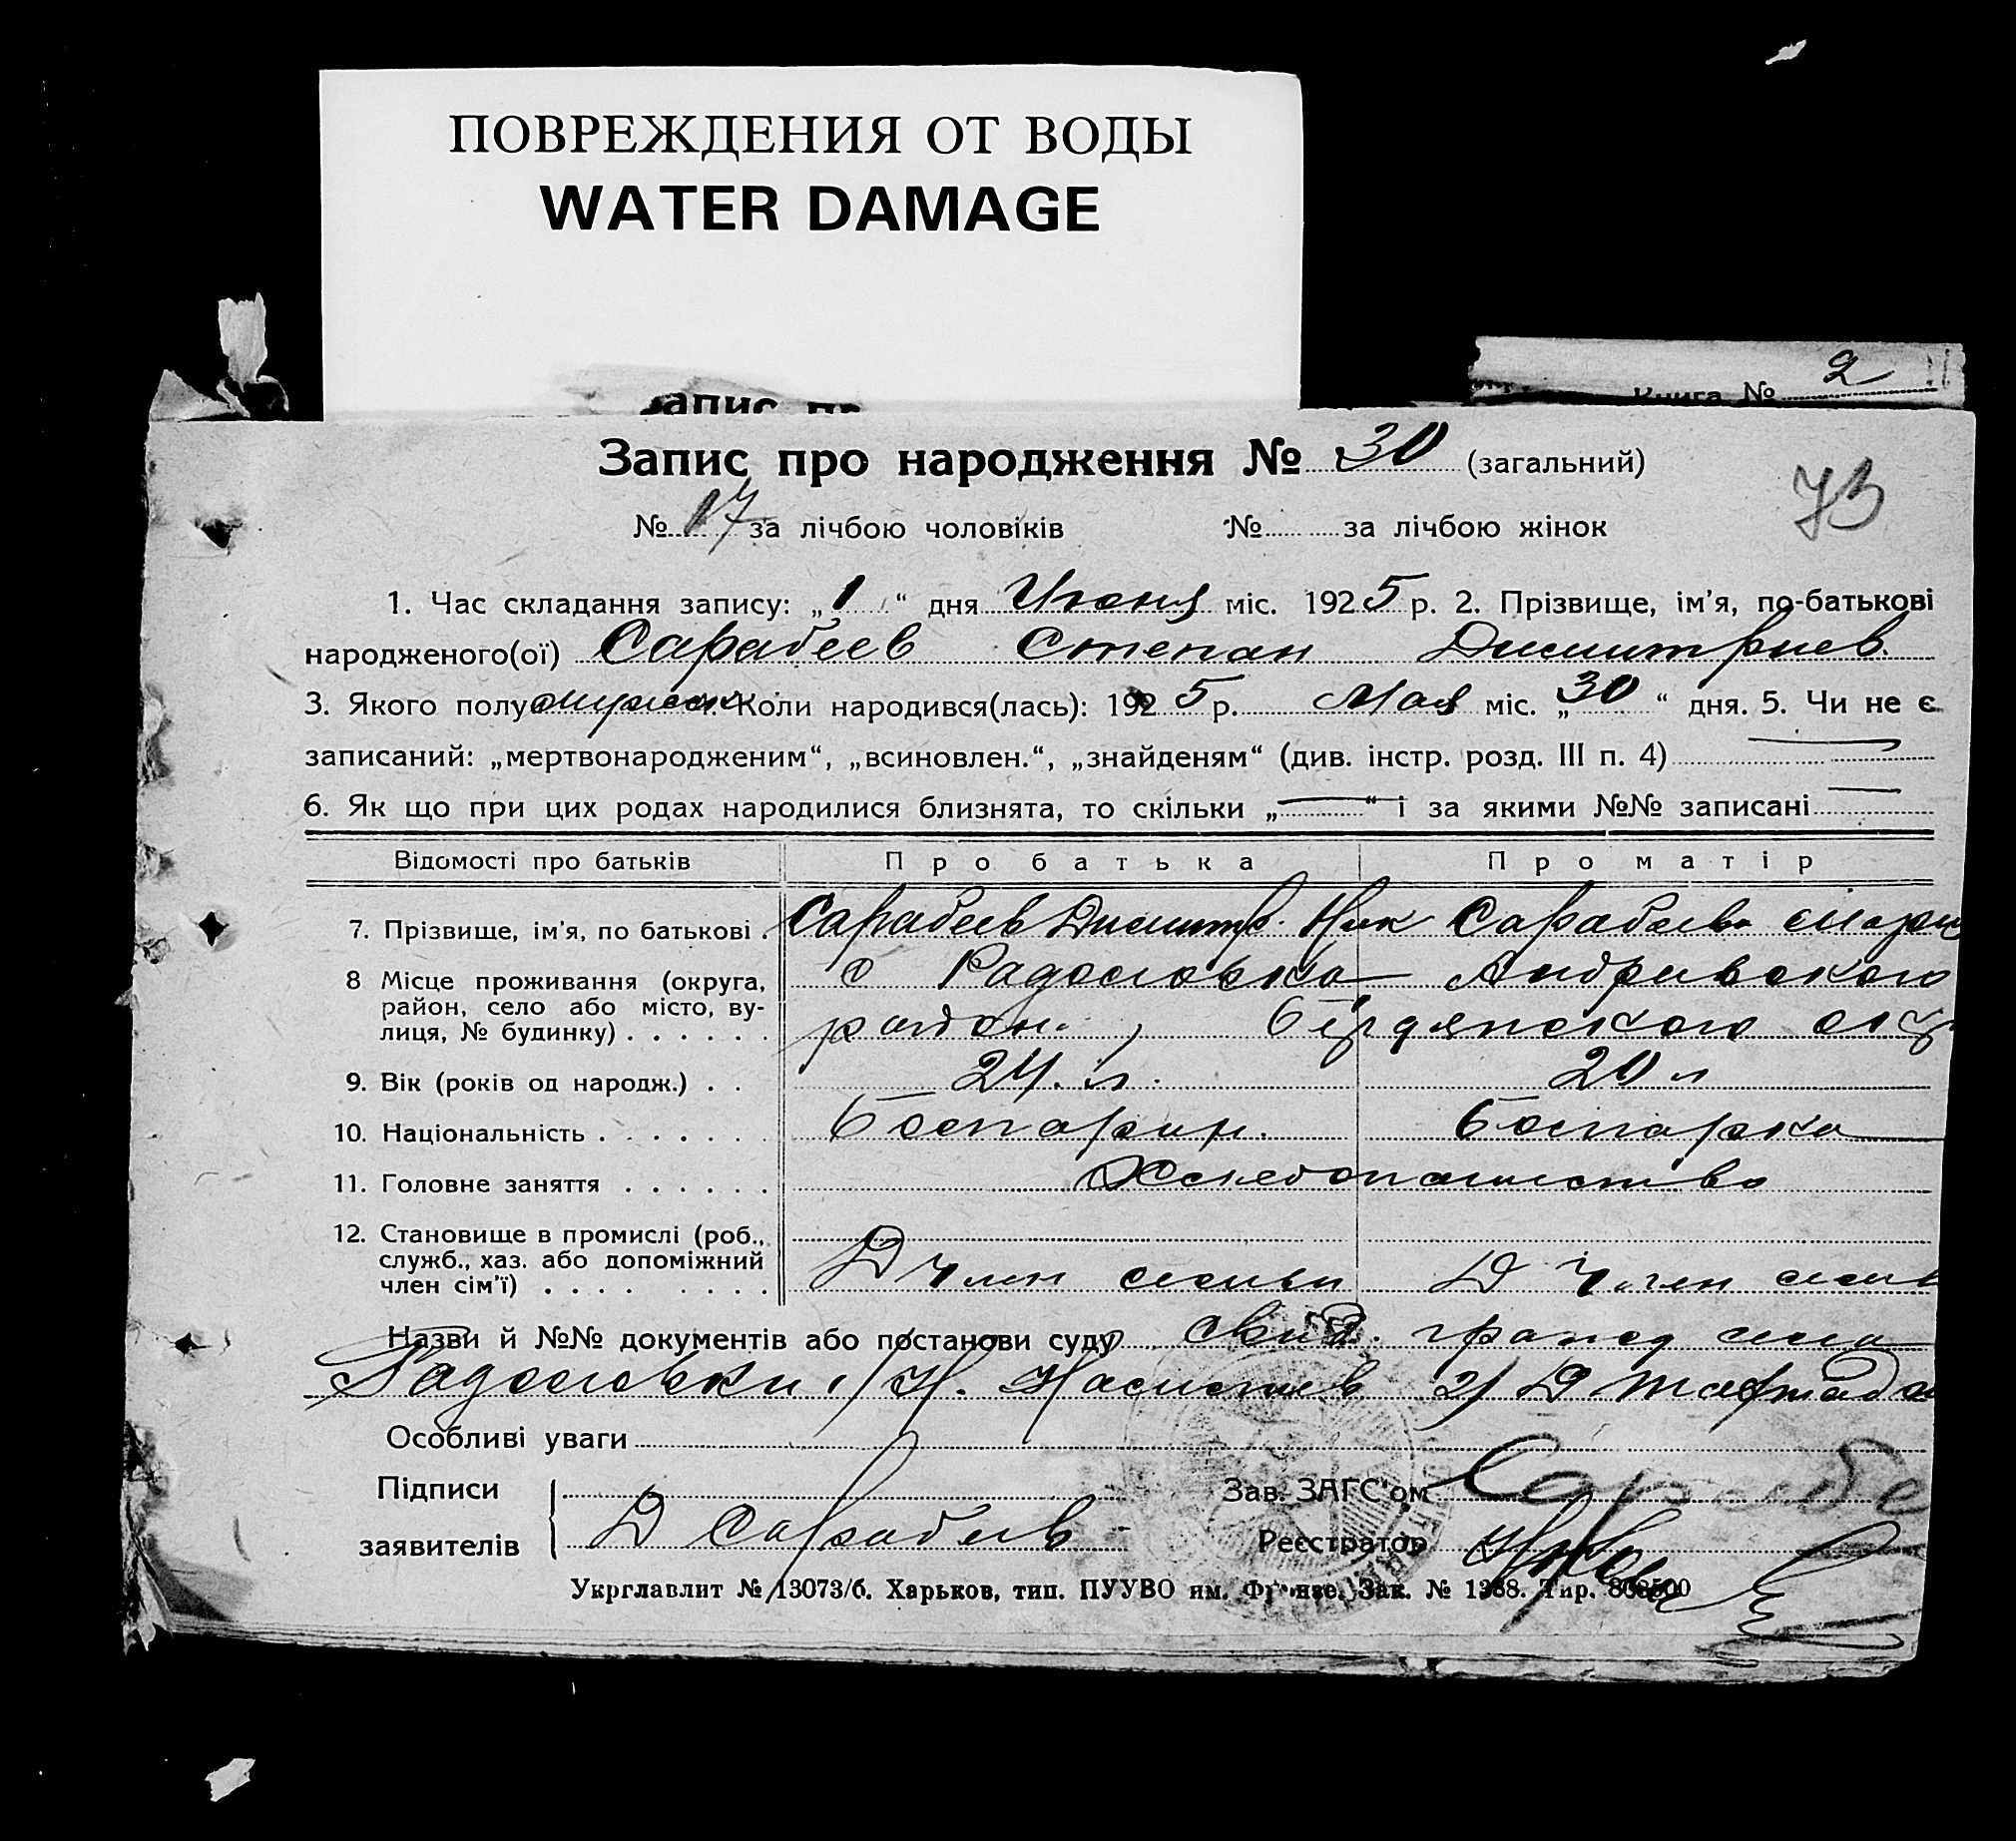 ПОВРЕЖДЕНИЯ ОТ ВОДЫ
WATER DAMAGE
Книга № 2
Запис про народження № 30 (загальний)
73
№ 17 за лічбою чоловіків № за лічбою жінок
1. Час складання запису: „1“ дня Июня міс. 1925 р. 2. Прізвище, ім'я, по-батькові
народженого(ої) Сарабеев Степан Димитриев
3. Якого полу мужск 4. Коли народився(лась): 1925 р. Мая міс. „30“ дня. 5. Чи не є
записаний: „мертвонародженим“, „всиновлен.“, „знайденям“ (див. інстр. розд. III п. 4)
6. Як що при цих родах народилися близнята, то скільки „—“ і за якими №№ записані —
Відомості про батьків Про батька Про матір
7. Прізвище, ім'я, по батькові . Сарабеев Димитр. Ник Сарабеева Мари
8 Місце проживання (округа, с Радоловка Андривского
район, село або місто, ву-
лиця, № будинку) . . . . . . район. , Бірдянского окр
9. Вік (років од народж.) . . 24. л. 20 л
10. Національність . . . . . . . Болгарин. Болгарка
11. Головне заняття . . . . . . Хлебопашество
12. Становище в промислі (роб.,
служб., хаз. або допоміжний
член сім'ї) . . . . . . . . Д член семьи Д член семьи
Назви й №№ документів або постанови суду свид. гражд села
Радоловки 1/ Н. 2/ Д
Особливі уваги
Підписи Зав. ЗАГС'ом Сарабе
заявителів Д Сарабеев Реєстратор
Укрглавлит № 13073/б. Харьков, тип. ПУУВО им. Фрунзе. Зак. № 1388. Тир. 808500